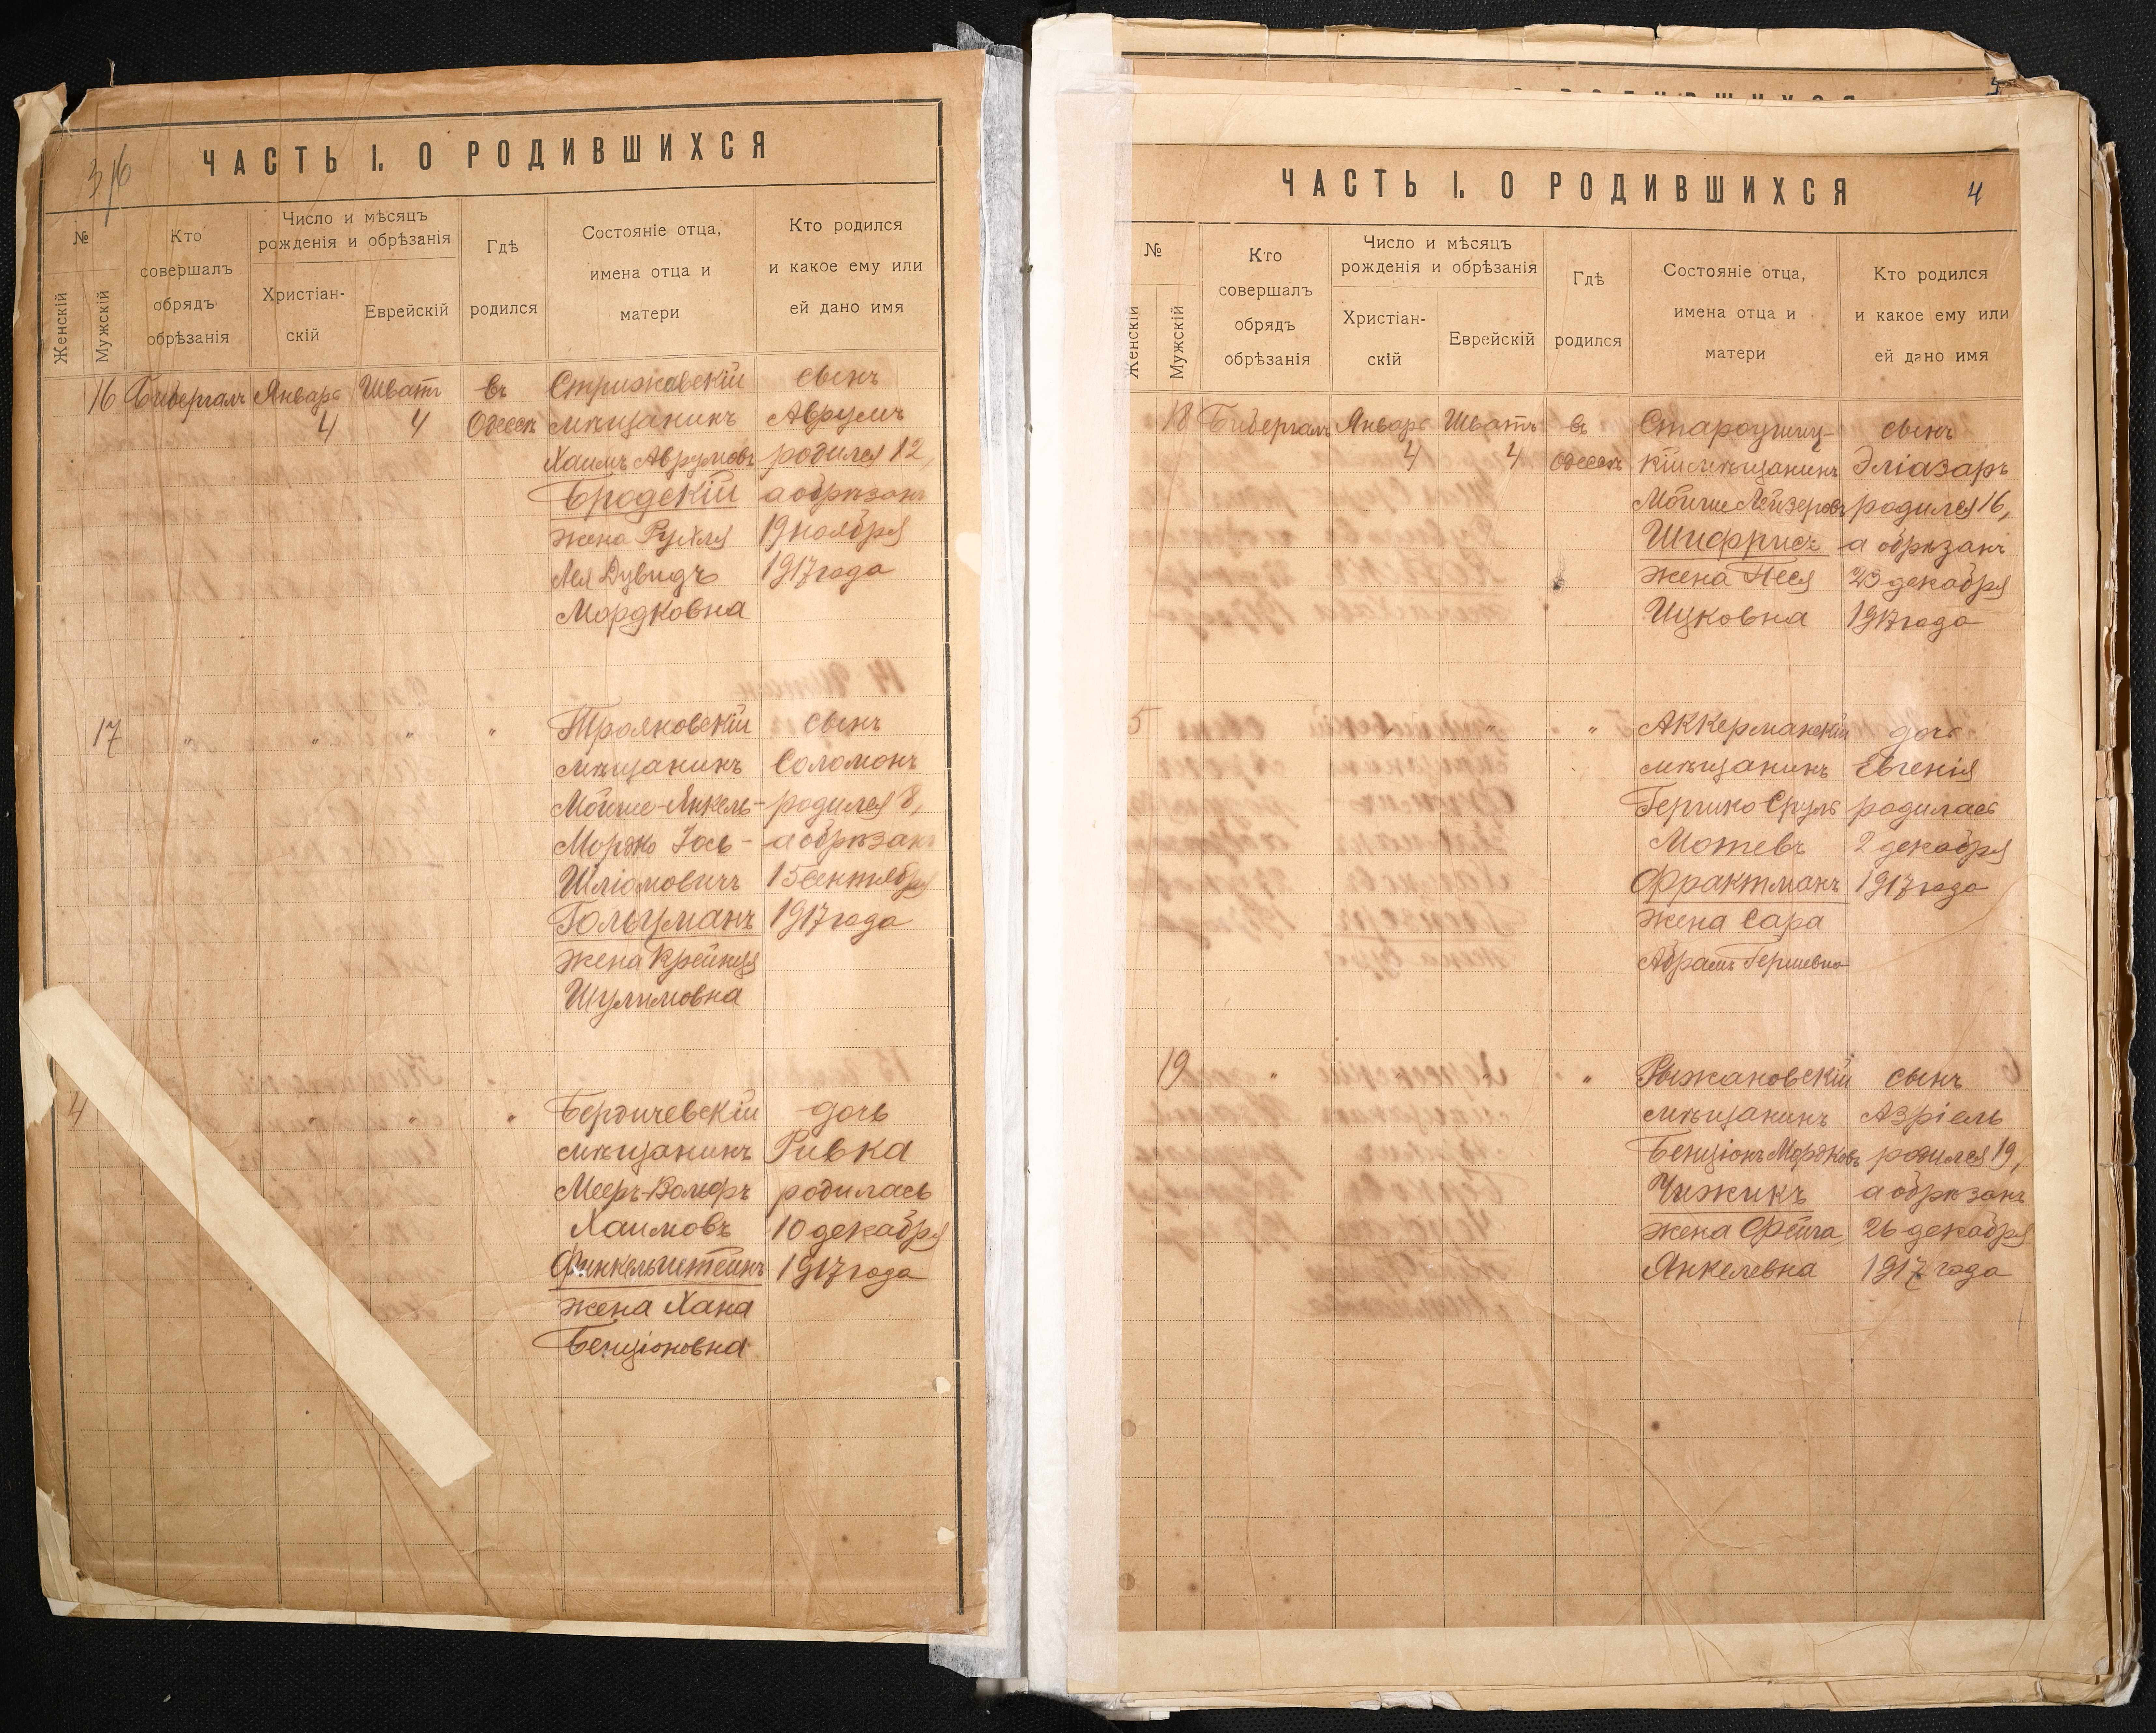 3/6
ЧАСТЬ I. О РОДИВШИХСЯ
№
Женскій
Мужскій
Кто
совершалъ
обрядъ
обрѣзанія
Число и мѣсяцъ
рожденія и обрѣзанія
Христіан-
скій
Еврейскій
Гдѣ
родился
Состояніе отца,
имена отца и
матери
Кто родился
и какое ему или
ей дано имя
16 Бибергалъ Январь Шватъ въ Стрижавскій сынъ
4 4 Одессѣ мѣщанинъ Аврумъ
Хаимъ Аврумовъ родился 12,
Бродскій а обрѣзанъ
жена Рухля 19 ноября
Лея Дувидъ 1917 года
Мордковна
17 " " " " Трояновскій сынъ
мѣщанинъ Соломонъ
Мойше-Янкель- родился 8,
Мордко Іось- а обрѣзанъ
Шліомовичъ 15 сентября
Гольцманъ 1917 года
жена Крейнця
Шулимовна
4 " " Бердичевскій дочь
мѣщанинъ Ривка
Мееръ-Вольфъ родилась
Хаимовъ 10 декабря
Финкельштейнъ 1917 года
жена Хана
Бенціоновна
ЧАСТЬ I. О РОДИВШИХСЯ
4
№
Женскій
Мужскій
Кто
совершалъ
обрядъ
обрѣзанія
Число и мѣсяцъ
рожденія и обрѣзанія
Христіан-
скій
Еврейскій
Гдѣ
родился
Состояніе отца,
имена отца и
матери
Кто родился
и какое ему или
ей дано имя
18 Бибергалъ Январь Шватъ въ Староушиц- сынъ
4 4 Одессѣ кій мѣщанинъ Эліазаръ
Мойше Лейзеровъ родился 16,
Шифрисъ а обрѣзанъ
жена Песя 23 декабря
Ицковна 1917 года
5 " " Аккерманскій дочь
мѣщанинъ Евгенія
Гершко Сруль родилась
Мотевъ 2 декабря
Фрактманъ 1917 года
жена Сара
Абрамъ Гершевна
19 " " " Рыжановскій сынъ
мѣщанинъ Азріель
Бенціонъ Мордковъ родился 19,
Чижикъ а обрѣзанъ
жена Фейга 26 декабря
Янкелевна 1917 года